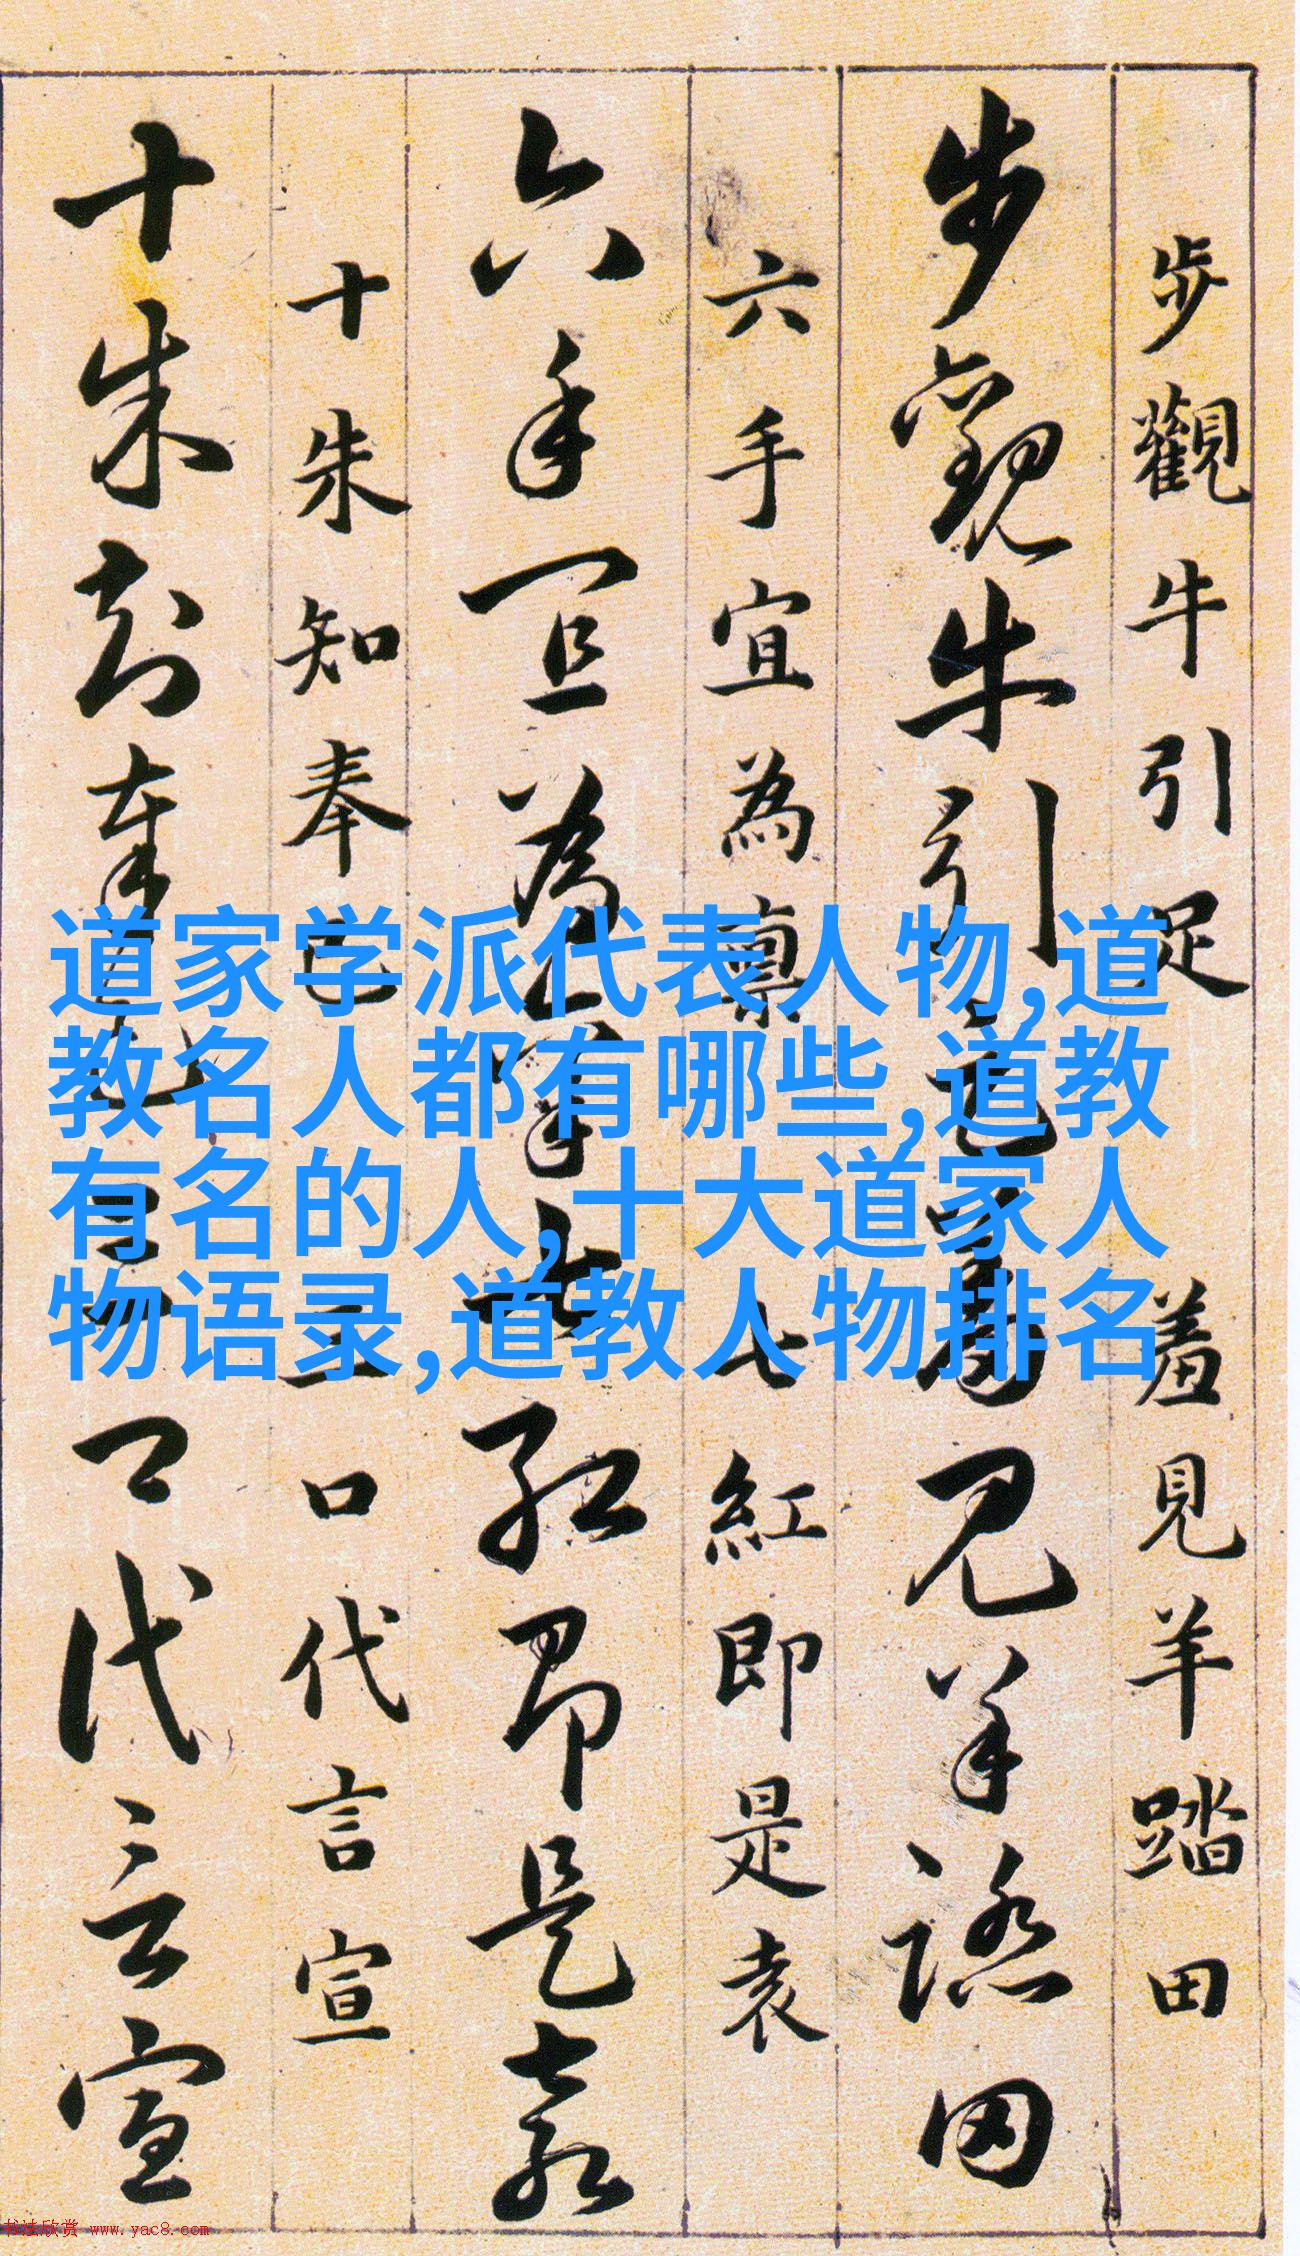 步觀牛引足 羞見羊踏田
步觀牛引足羞見羊踏田
六手宜為稟 七紅即是袁
六手宜為稟七紅即是袁
十朱知奉已 三口代言宣
十朱知奉已三口代言宣
道家学派代表人物,道
教名人都有哪些,道教
有名的人,十大道家人
物语录,道教人物排名
书法欣赏 www.yac8.com